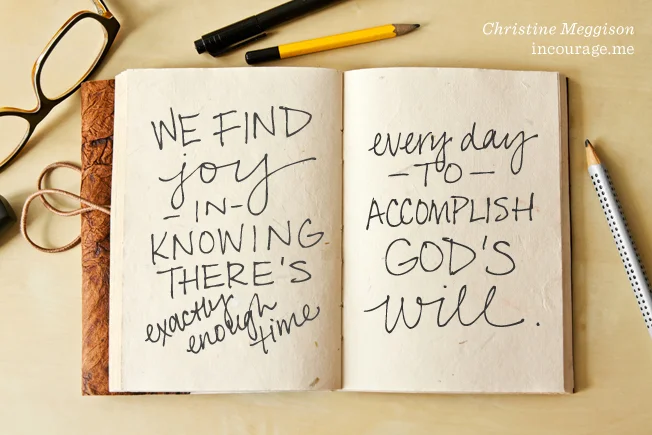 Christine Meggison
incourage.me
WE FIND
joy
-IN-
KNOWING
THERE'S
exactly
enough
time
every day
-TO-
ACCOMPLISH
GOD'S
will.